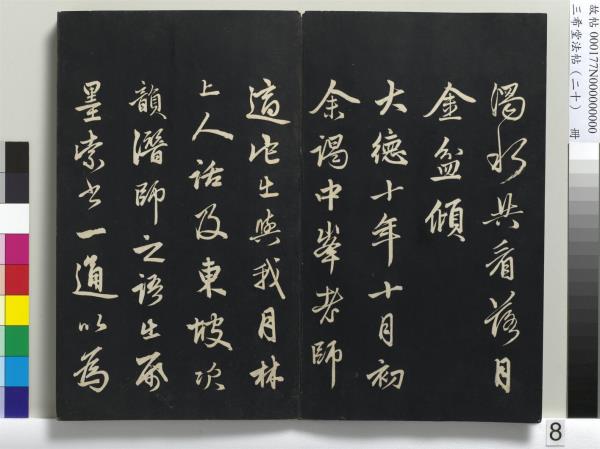 濁水共看落月
金盆傾
大德十年十月初
余謁中峯老師
適它出與我月林
上人話及東坡次
韻潛師之語出帋
墨索書一通以為
故帖 000177N000000000
三希堂法帖（二十） 冊
8